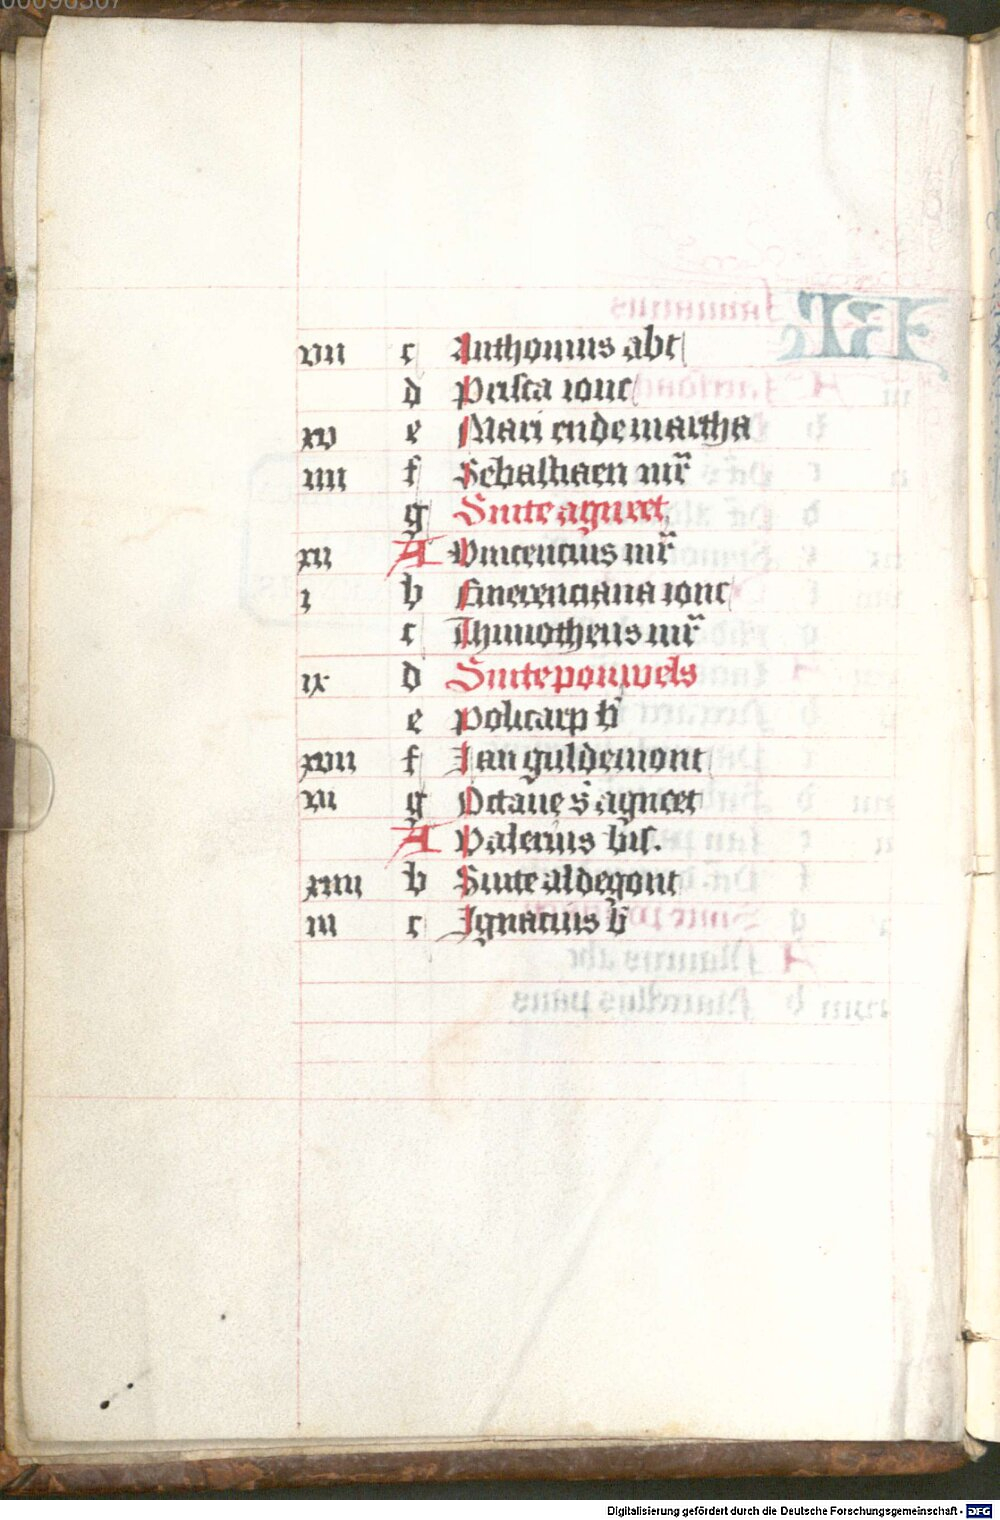 vııı c Anthonius abt
d Prisca ionc
xv e Mari ende martha
ıııı f Sebastiaen mr̄
g Sinte agneet
xıı A Vincencius mr̄
ı b Emerenciana ionc
c Thimotheus mr̄
ıx d Sinte pouwels
e Policarp b̄
xvıı f Jan guldemont
vı g Octaue s agneet
A Valerius bis.
xıııı b Sinte aldegont
ııı c Ignacius b̄
Digitalisierung gefördert durch die Deutsche Forschungsgemeinschaft - DFG